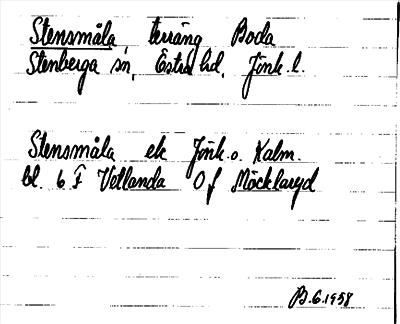 Stensmåla, terräng Boda
Stenberga sn, Östra hd, Jönk. l.
Stensmåla ek Jönk. o. Kalm.
bl. 6 F Vetlanda Of Möcklaryd
B.G.1958